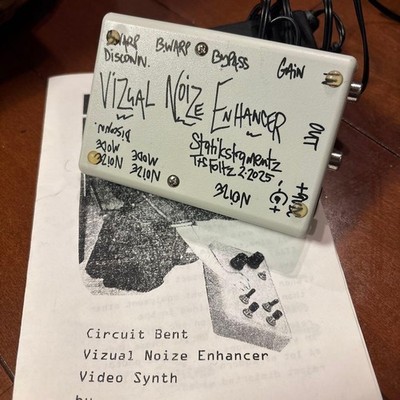 BWARP BWARP BYPASS
DISCONN.
GAIN
VIZUAL NOIZE ENHANCER
OUT
DISCONN.
MODE MODE
NOIZE NOIZE
Statikstramentz
2.2025
NOIZE
Circuit Bent
Vizual Noize Enhancer
Video Synth
by